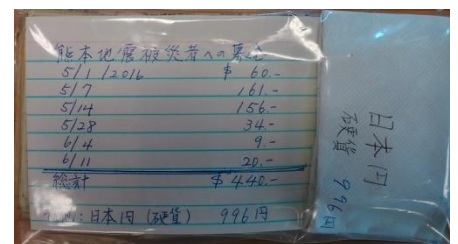 熊本地震被災者への募金
5/1/2016 $ 60.-
5/7 161.-
5/14 156.-
5/28 34.-
6/4 9.-
6/11 20.-
総計 $ 440.-
日本円 (硬貨) 996円
日本円
硬貨 996円